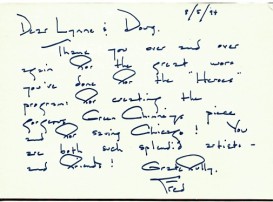 8/5/94
Dear Lynne & Doug,
Thank you over and over
again for the great work
you've done for the "Heroes"
program: for creating the
gorgeous Green Chimneys piece
and for saving Chicago! You
are both such splendid artists -
and friends!
Gratefully,
Fred